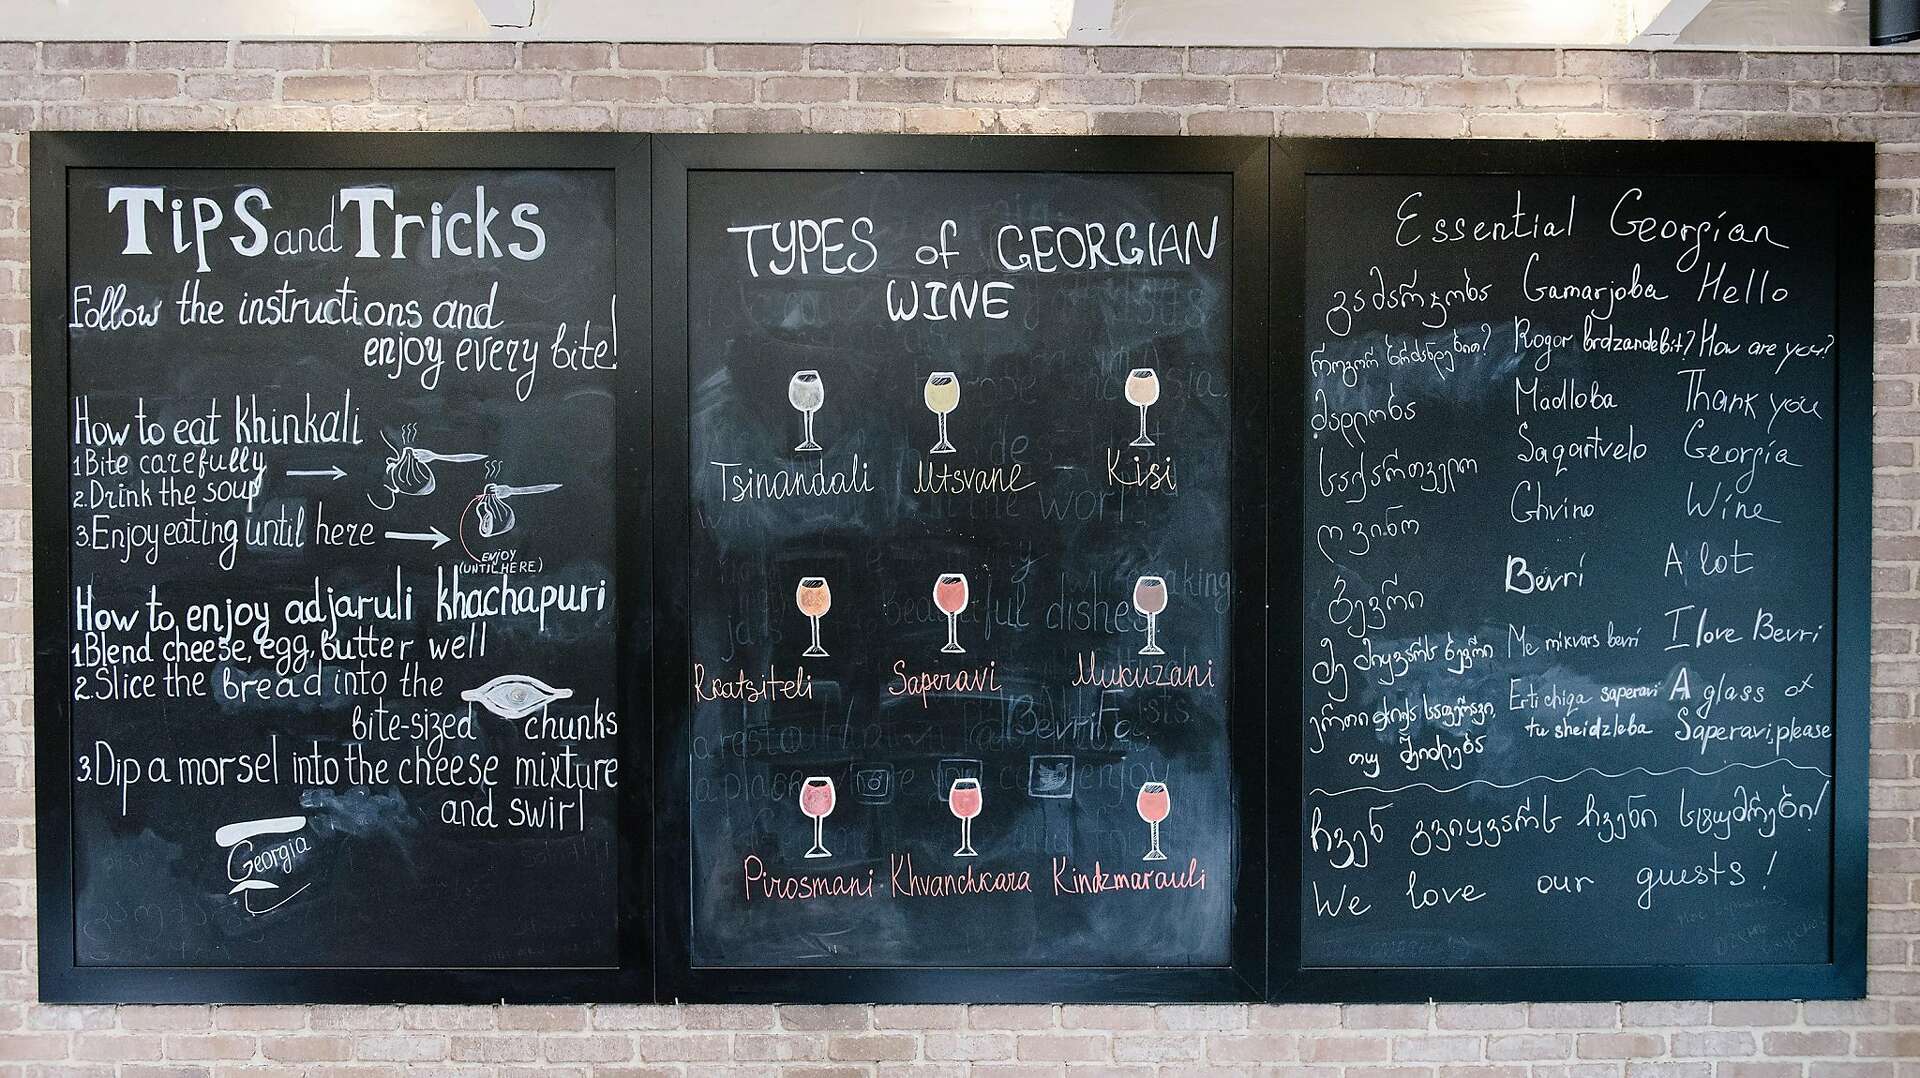 Tips and Tricks
Follow the instructions and
enjoy every bite!
How to eat khinkali
1 Bite carefully
2. Drink the soup
3. Enjoy eating until here
ENJOY
(UNTIL HERE)
How to enjoy adjaruli khachapuri
1 Blend cheese, egg, butter well
2. Slice the bread into the
bite-sized chunks
3. Dip a morsel into the cheese mixture
and swirl
Georgia
TYPES of GEORGIAN
WINE
Tsinandali Mtsvane Kisi
Rkatsiteli Saperavi Mukuzani
Pirosmani Khvanchkara Kindzmarauli
Essential Georgian
გამარჯობა Gamarjoba Hello
როგორ ბრძანდებით? Rogor brdzandebit? How are you?
მადლობა Madloba Thank you
საქართველო Saqartvelo Georgia
ღვინო Ghvino Wine
ბევრი Bevri A lot
მე მიყვარს ბევრი Me mikvars bevri I love Bevri
ერთი ჭიქა საფერავი, Erti chiqa saperavi A glass of
თუ შეიძლება tu sheidzleba Saperavi, please
ჩვენ გვიყვარს ჩვენი სტუმრები!
We love our guests!